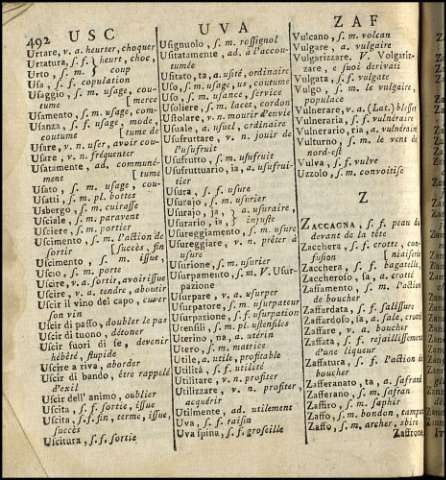 492 USC
UVA
ZAF
Urtare, v. a. heurter, choquer
Urtatura, s. f. } heurt, choc,
Urto, s. m. } coup
Usa, s. f. copulation
Usaggio, s. m. usage, cou-
tume [merce
Usamento, s. m. usage, com-
Usanza, s. f. usage, mode,
coutume [tume de
Usare, v. n. user, avoir cou-
Usare, v. n. fréquenter
Usatamente, ad. communé-
ment [tume
Usato, s. m. usage, cou-
Usatti, s. m. pl. bottes
Usbergo, s. m. cuirasse
Usciale, s. m. paravent
Usciere, s. m. portier
Uscimento, s. m. l'action de
sortir [succès, fin
Uscimento, s. m. issue,
Uscio, s. m. porte
Uscire, v. a. sortir, avoir issue
Uscire, v. a. tendre, aboutir
Uscir il vino del capo, cuver
son vin
Uscir di passo, doubler le pas
Uscir di tuono, détoner
Uscir fuori di se, devenir
hébété, stupide
Uscire a riva, aborder
Uscir di bando, être rappelé
d'exil
Uscir dell' animo, oublier
Uscita, s. f. sortie, issue
Uscita, s. f. fin, terme, issue,
succès
Uscitura, s. f. sortie
Usignuolo, s. m. rossignol
Usitatamente, ad. à l'accou-
tumée
Usitato, ta, a. usité, ordinaire
Uso, s. m. usage, us, coutume
Uso, s. m. usance, service
Usoliere, s. m. lacet, cordon
Ustolare, v. n. mourir d'envie
Usuale, a. usuel, ordinaire
Usufruttare, v. n. jouir de
l'usufruit
Usufrutto, s. m. usufruit
Usufruttuario, ia, a. usufrui-
tier
Usura, s. f. usure
Usurajo, s. m. usurier
Usurajo, ja, } a. usuraire,
Usurario, ia, } injuste
Usureggiamento, s. m. usure
Usureggiare, v. n. prêter à
usure
Usuriere, s. m. usurier
Usurpamento, s. m. V. Usur-
pazione
Usurpare, v. a. usurper
Usurpatore, s. m. usurpateur
Usurpazione, s. f. usurpation
Utensili, s. m. pl. ustensiles
Uterino, na, a. utérin
Utero, s. m. matrice
Utile, a. utile, profitable
Utilità, s. f. utilité
Utilitare, v. n. profiter
Utilizzare, v. n. profiter,
acquérir
Utilmente, ad. utilement
Uva, s. f. raisin
Uva spina, s. f. groseille
Vulcano, s. m. volcan
Vulgare, a. vulgaire
Vulgarizzare. V. Volgariz-
zare, e suoi derivati
Vulgata, s. f. vulgate
Vulgo, s. m. le vulgaire,
populace
Vulnerare, v. a. (Lat.) blesser
Vulneraria, s. f. vulnéraire
Vulnerario, ria, a. vulnéraire
Vulturno, s. m. le vent de
nord-est
Vulva, s. f. vulve
Uzzolo, s. m. convoitise
Z
ZACCAGNA, s. f. peau du
devant de la tête
Zacchera, s. f. crotte, con-
fusion [niaiserie
Zacchera, s. f. bagatelle,
Zaccheroso, sa, a. crotté
Zaffamento, s. m. l'action
de boucher
Zaffardata, s. f. salissure
Zaffardoso, sa, a. sale, crotté
Zaffare, v. a. boucher
Zaffata, s. f. rejaillissement
d'une liqueur
Zaffatura, s. f. l'action de
boucher
Zafferanato, ta, a. safrané
Zafferano, s. m. safran
Zaffiro, s. m. saphir
Zaffo, s. m. bondon, tampon
Zaffo, s. m. archer, sbire
Zaffrone